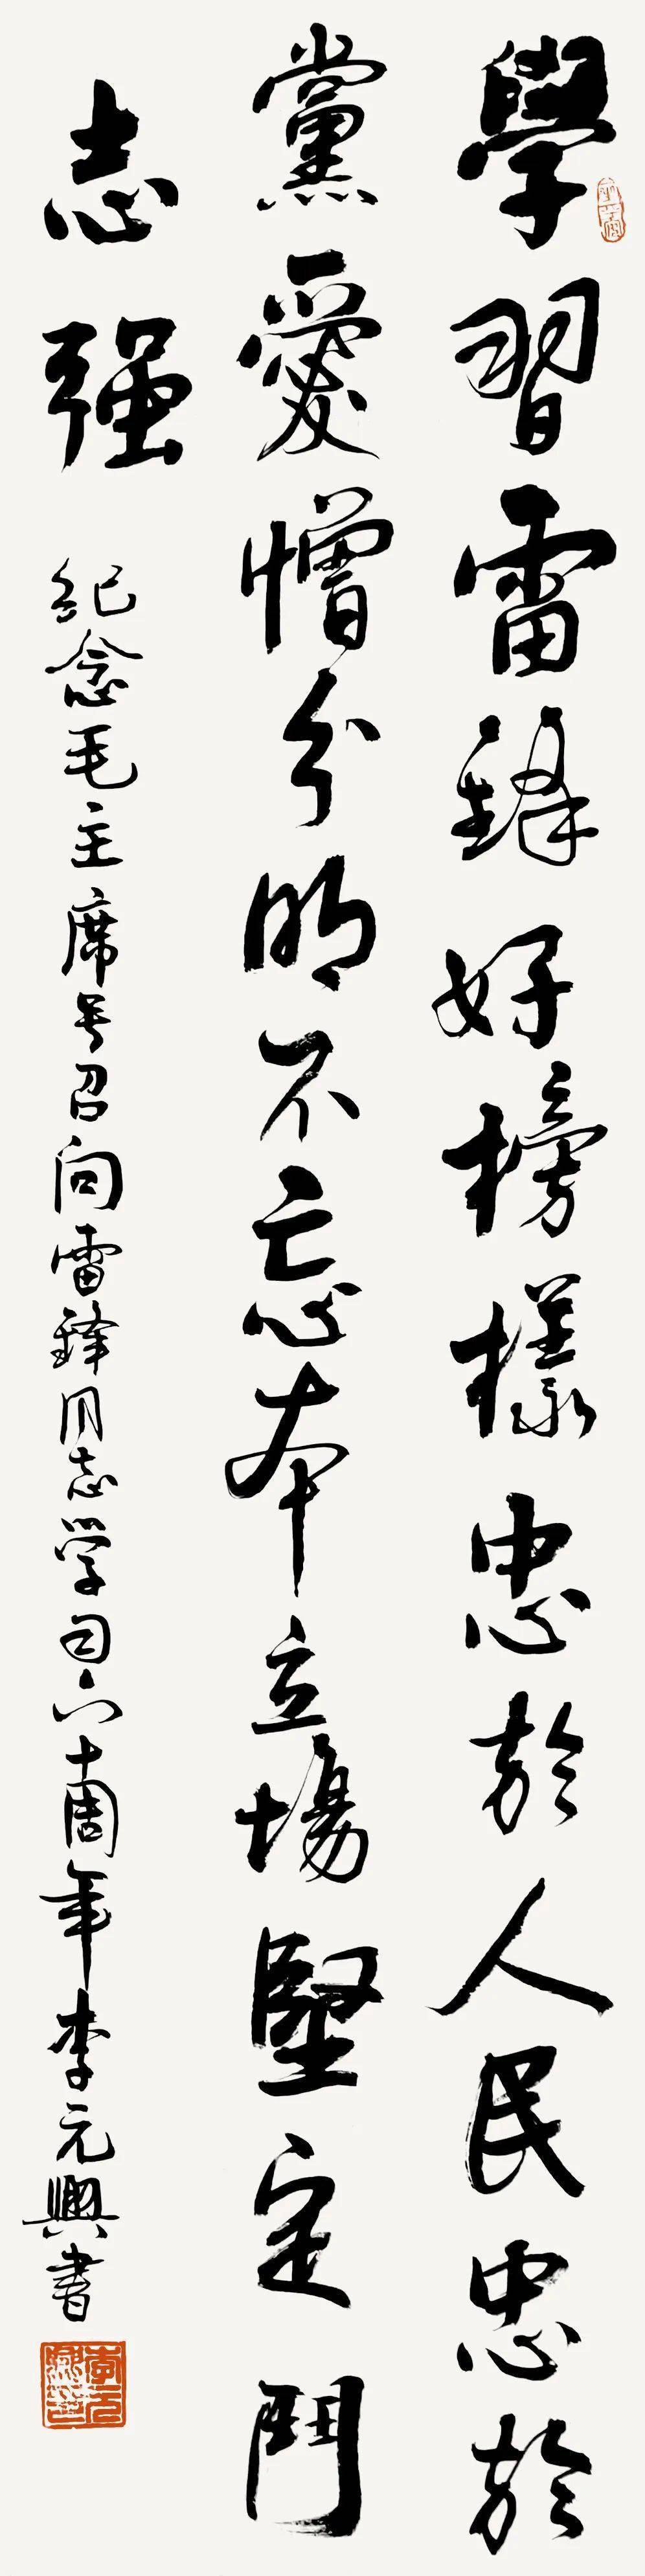 學習雷鋒好榜樣忠於人民忠於
黨愛憎分明不忘本立場堅定鬥
志强
纪念毛主席号召向雷锋同志学习六十周年李元興书